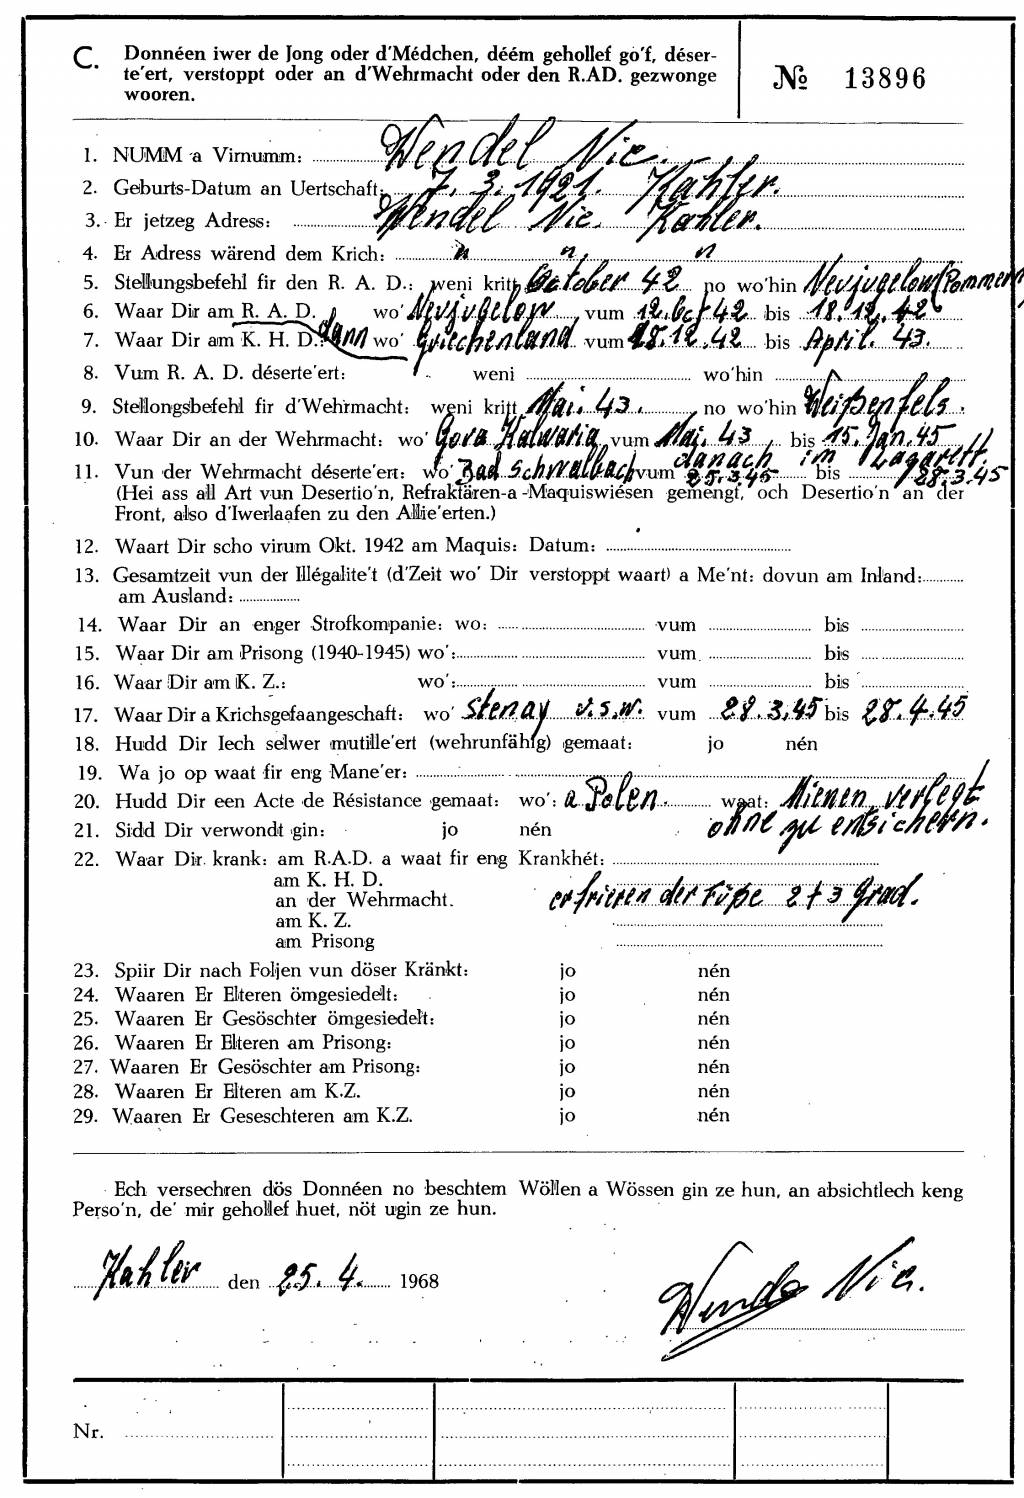 C. Donnéen iwer de Jong oder d'Médchen, déém gehollef go'f, déser-
te'ert, verstoppt oder an d'Wehrmacht oder den R.AD. gezwonge
wooren.
№ 13896
1. NUMM a Virnumm: Wendel Nic.
2. Geburts-Datum an Uertschaft: 7. 3. 1921. Kahler.
3. Er jetzeg Adress: Wendel Nic. Kahler.
4. Er Adress wärend dem Krich: " " "
5. Stellungsbefehl fir den R. A. D.: weni kritt October 42 no wo'hin Nevjugelow (Pommern)
6. Waar Dir am R. A. D. wo' Nevjugelow vum 12. Oct 42 bis 18.12. 42
7. Waar Dir am K. H. D.: dann wo' Griechenland vum 18.12.42 bis April. 43.
8. Vum R. A. D. déserte'ert: weni wo'hin
9. Stellongsbefehl fir d'Wehrmacht: weni kritt Mai. 43. no wo'hin Weißenfels.
10. Waar Dir an der Wehrmacht: wo' Gora Kalwaria vum Mai. 43 bis 15. Jan. 45
danach im Lazarett.
11. Vun der Wehrmacht déserte'ert: wo' Bad Schwalbach vum 25.3.45 bis 28.3.45
(Hei ass all Art vun Desertio'n, Refraktären-a -Maquiswiésen gemengt, och Desertio'n an der
Front, also d'Iwerlaafen zu den Allie'erten.)
12. Waart Dir scho virum Okt. 1942 am Maquis: Datum:
13. Gesamtzeit vun der Illégalite't (d'Zeit wo' Dir verstoppt waart) a Me'nt: dovun am Inland:
am Ausland:
14. Waar Dir an enger Strofkompanie: wo: vum bis
15. Waar Dir am Prisong (1940-1945) wo': vum bis
16. Waar Dir am K. Z.: wo': vum bis
17. Waar Dir a Krichsgefaangeschaft: wo' Stenay u.s.w. vum 28.3.45 bis 28.4.45
18. Hudd Dir Iech selwer mutille'ert (wehrunfähig) gemaat: jo nén
19. Wa jo op waat fir eng Mane'er:
20. Hudd Dir een Acte de Résistance gemaat: wo': a Polen. waat: Mienen verlegt
21. Sidd Dir verwondt gin: jo nén ohne zu entsichern.
22. Waar Dir krank: am R.A.D. a waat fir eng Krankhét:
am K. H. D.
an der Wehrmacht. erfrieren der Füße 2 + 3 Grad.
am K. Z.
am Prisong
23. Spiir Dir nach Foljen vun döser Kränkt: jo nén
24. Waaren Er Elteren ömgesiedelt: jo nén
25. Waaren Er Gesöschter ömgesiedelt: jo nén
26. Waaren Er Elteren am Prisong: jo nén
27. Waaren Er Gesöschter am Prisong: jo nén
28. Waaren Er Elteren am K.Z. jo nén
29. Waaren Er Geseschteren am K.Z. jo nén
Ech versechren dös Donnéen no beschtem Wöllen a Wössen gin ze hun, an absichtlech keng
Perso'n, de' mir gehollef huet, nöt ugin ze hun.
Kahler den 25. 4. 1968
Wendel Nic.
Nr.